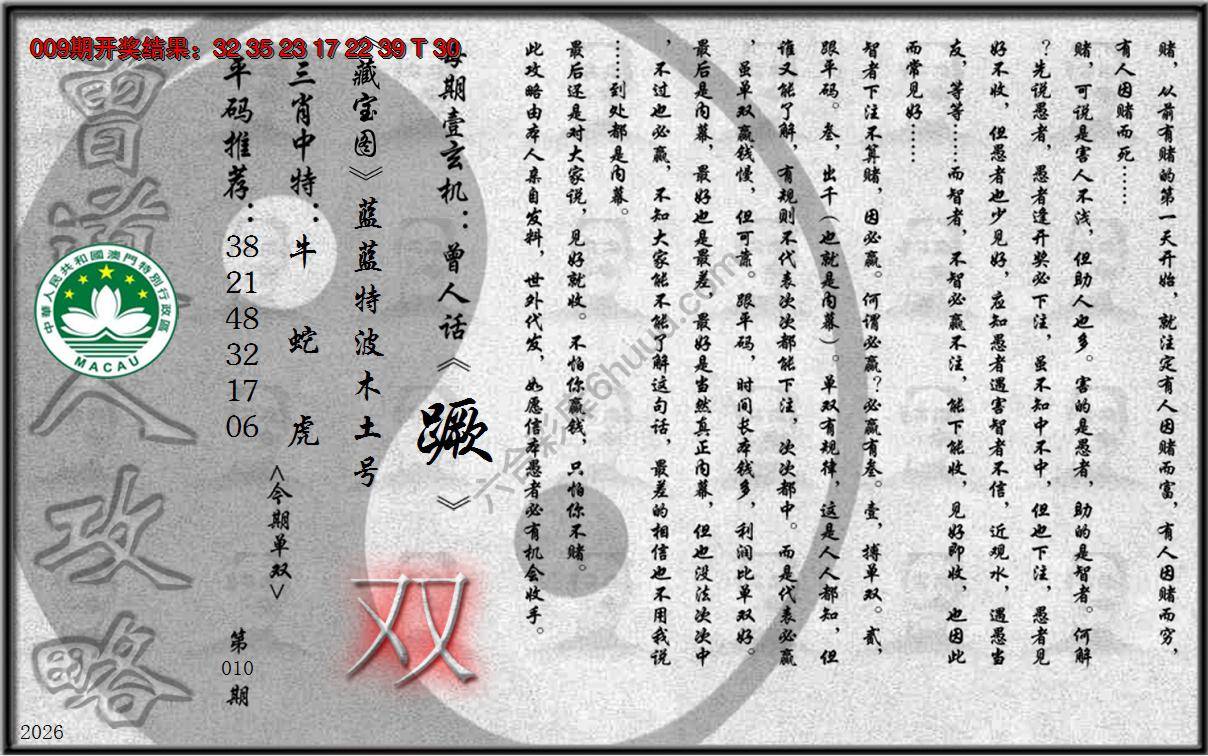 009期开奖结果：32 35 23 17 22 39 T 30
赌，从前有赌的第一天开始，就注定有人因赌而富，有人因赌而穷，
有人因赌而死……
赌，可说是害人不浅，但助人也多。害的是愚者，助的是智者。何解
？先说愚者，愚者逢开奖必下注，虽不知中不中，但也下注，愚者见
好不收，但愚者也少见好，应知愚者遇害智者不信，近观水，遇愚当
友，等等……而智者，不智必赢不注，能下能收，见好即收，也因此
而常见好……
智者下注不算赌，因必赢。何谓必赢？必赢有叁。壹，搏单双。贰，
跟平码。叁，出千（也就是内幕）。单双有规律，这是人人都知，但
谁又能了解，有规则不代表次次都能下注，次次都中。而是代表必赢
，虽单双赢钱慢，但可靠。跟平码，时间长本钱多，利润比单双好。
最后是内幕，最好也是最差，最好是当然真正内幕，但也没法次次中
，不过也必赢，不知大家能不能了解这句话，最差的相信也不用我说
……到处都是内幕。
最后还是对大家说，见好就收。不怕你赢钱，只怕你不赌。
此攻略由本人亲自发料，世外代发，如愿信本愚者必有机会收手。
每期壹玄机：曾人话《蹶》
《藏宝图》蓝蓝特波木土号
三肖中特：牛 蛇 虎
<今期单双>
双
平码推荐：38 21 48 32 17 06
第010期
曾道人攻略
中華人民共和國澳門特別行政區
MACAU
六合彩库6huuu.com
2026